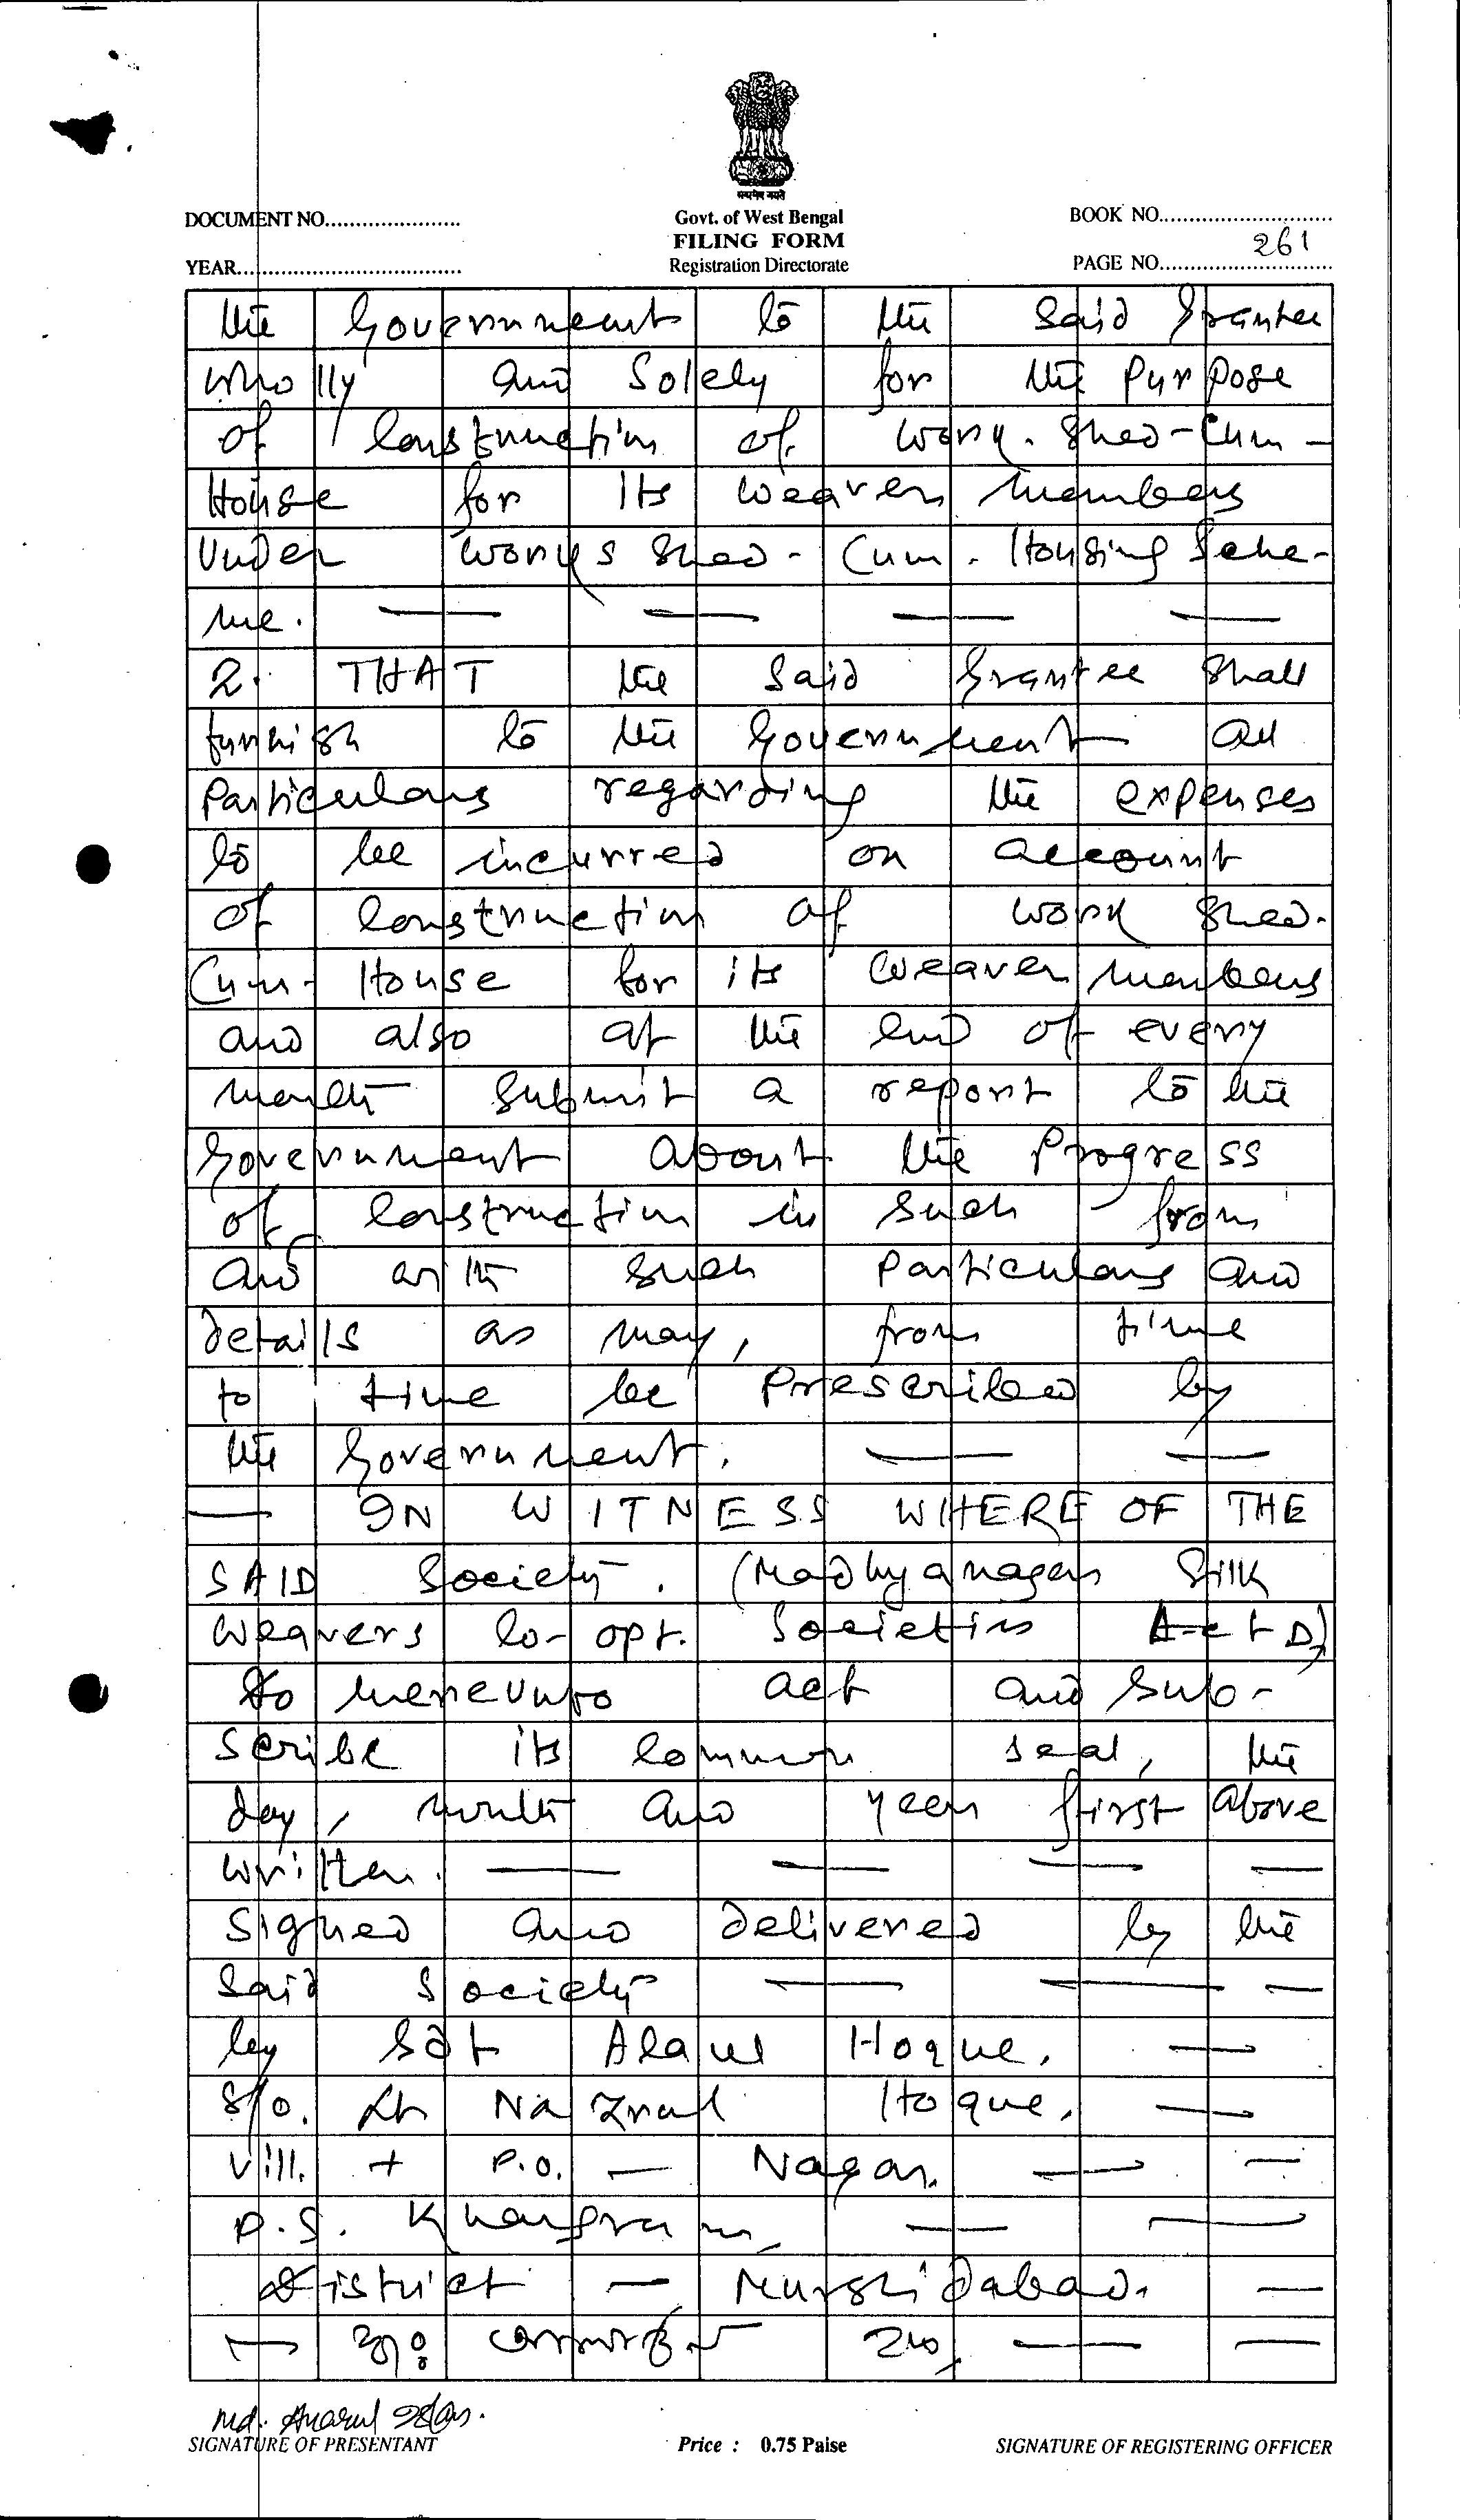 सत्यमेव जयते
DOCUMENT NO......................
Govt. of West Bengal
BOOK NO............................
FILING FORM
261
YEAR.....................................
Registration Directorate
PAGE NO............................
the Government to the Said Grantee
wholly and Solely for the Purpose
of Construction of work. Shed-Cum-
House for its weaver members
Under works Shed-Cum. Housing Sche-
me. — — — —
2. THAT the Said Grantee Shall
furnish to the Government all
Particulars regarding the expenses
to be incurred on account
of Construction of work Shed-
Cum-House for its weaver members
and also at the end of every
month Submit a report to the
Government about the Progress
of Construction in such from
and with such Particulars and
details as may, from time
to time be Prescribed by
the Government. — —
— IN WITNESS WHERE OF THE
SAID Society. (Madhyanagar Silk
weavers Co-opt. Societies LTD)
to hereunto act and Sub-
scribe its Common seal, the
day, month and year first above
written. — — — —
Signed and delivered by the
Said Society — — —
by Alaul Hoque. —
S/o. Lt Nazrul Hoque. —
Vill. + P.O. — Nagar. — —
P.S. Khargram — —
District — Murshidabad. —
SIGNATURE OF PRESENTANT
Price : 0.75 Paise
SIGNATURE OF REGISTERING OFFICER